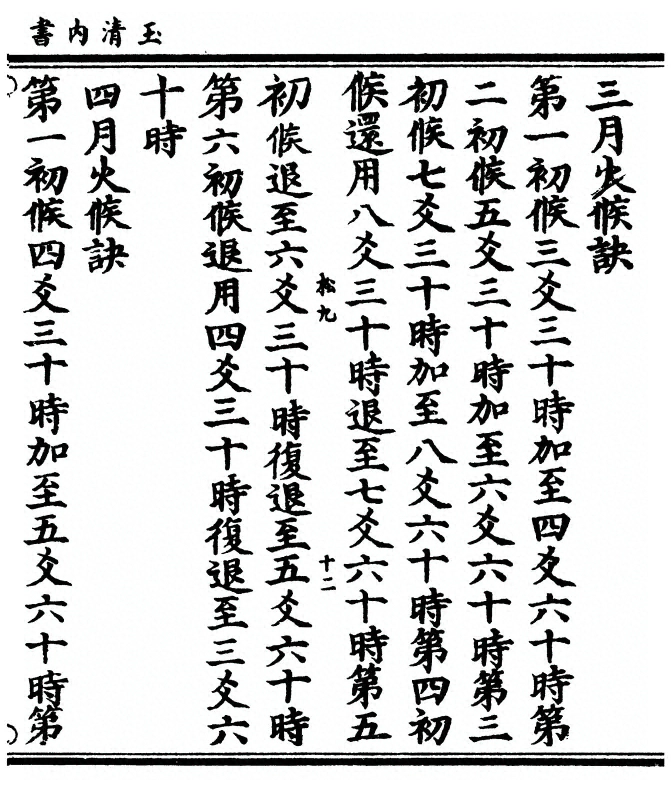 玉清内書
三月火候訣
第一初候三爻三十時加至四爻六十時第
二初候五爻三十時加至六爻六十時第三
初候七爻三十時加至八爻六十時第四初
候還用八爻三十時退至七爻六十時第五
松九
十二
初候退至六爻三十時復退至五爻六十時
第六初候退用四爻三十時復退至三爻六
十時
四月火候訣
第一初候四爻三十時加至五爻六十時第